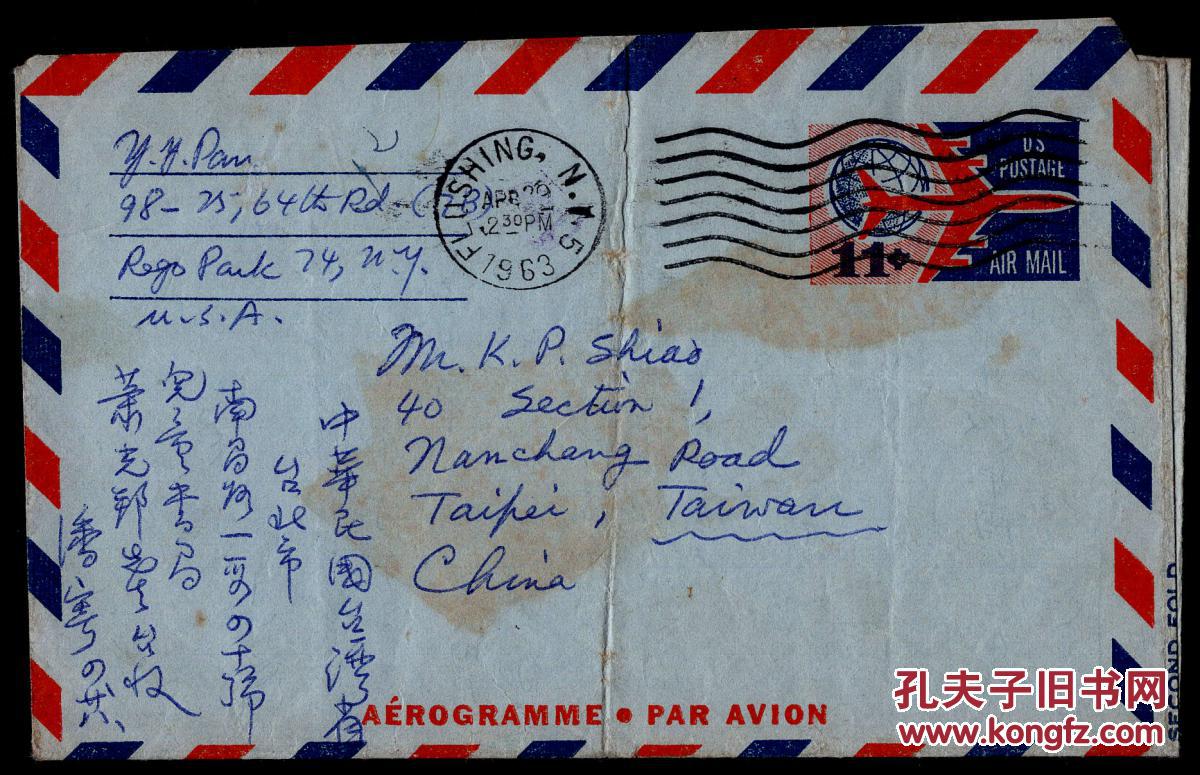 Y. Y. Pan
98-25, 64th Rd
Rego Park 74, N.Y.
U.S.A.
FLUSHING, N.Y. 5
APR 29
2 30 PM
1963
US
POSTAGE
11¢
AIR MAIL
Mr. K. P. Shiao
40 Section 1,
Nanchang Road
Taipei, Taiwan
China
中華民國台灣省
台北市
南昌路一段四十號
書局
蕭克邦先生台收
潘寄
AÉROGRAMME • PAR AVION
SECOND FOLD
孔夫子旧书网
www.kongfz.com